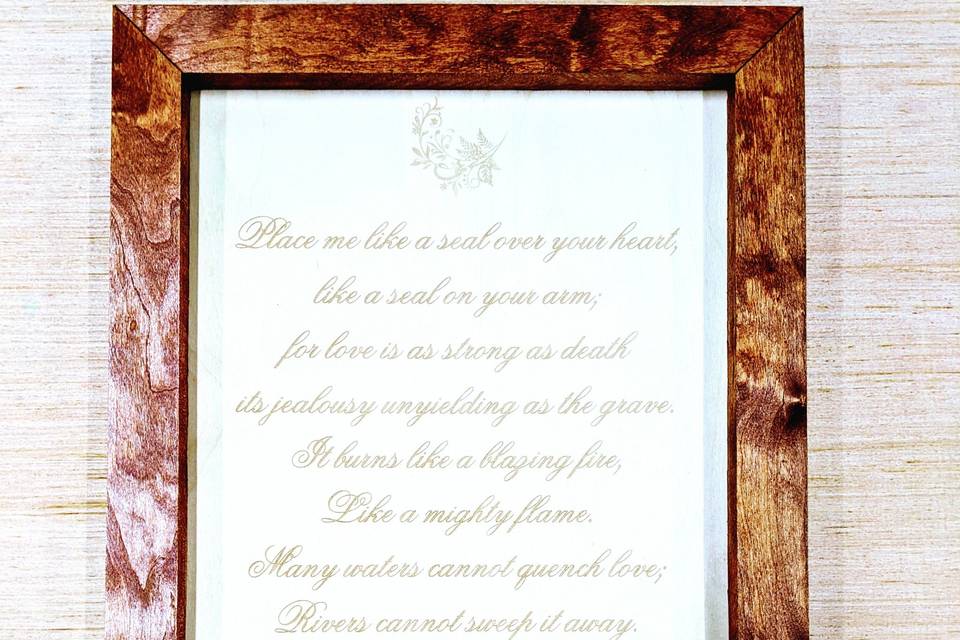 Place me like a seal over your heart,
like a seal on your arm;
for love is as strong as death
its jealousy unyielding as the grave.
It burns like a blazing fire,
Like a mighty flame.
Many waters cannot quench love;
Rivers cannot sweep it away.